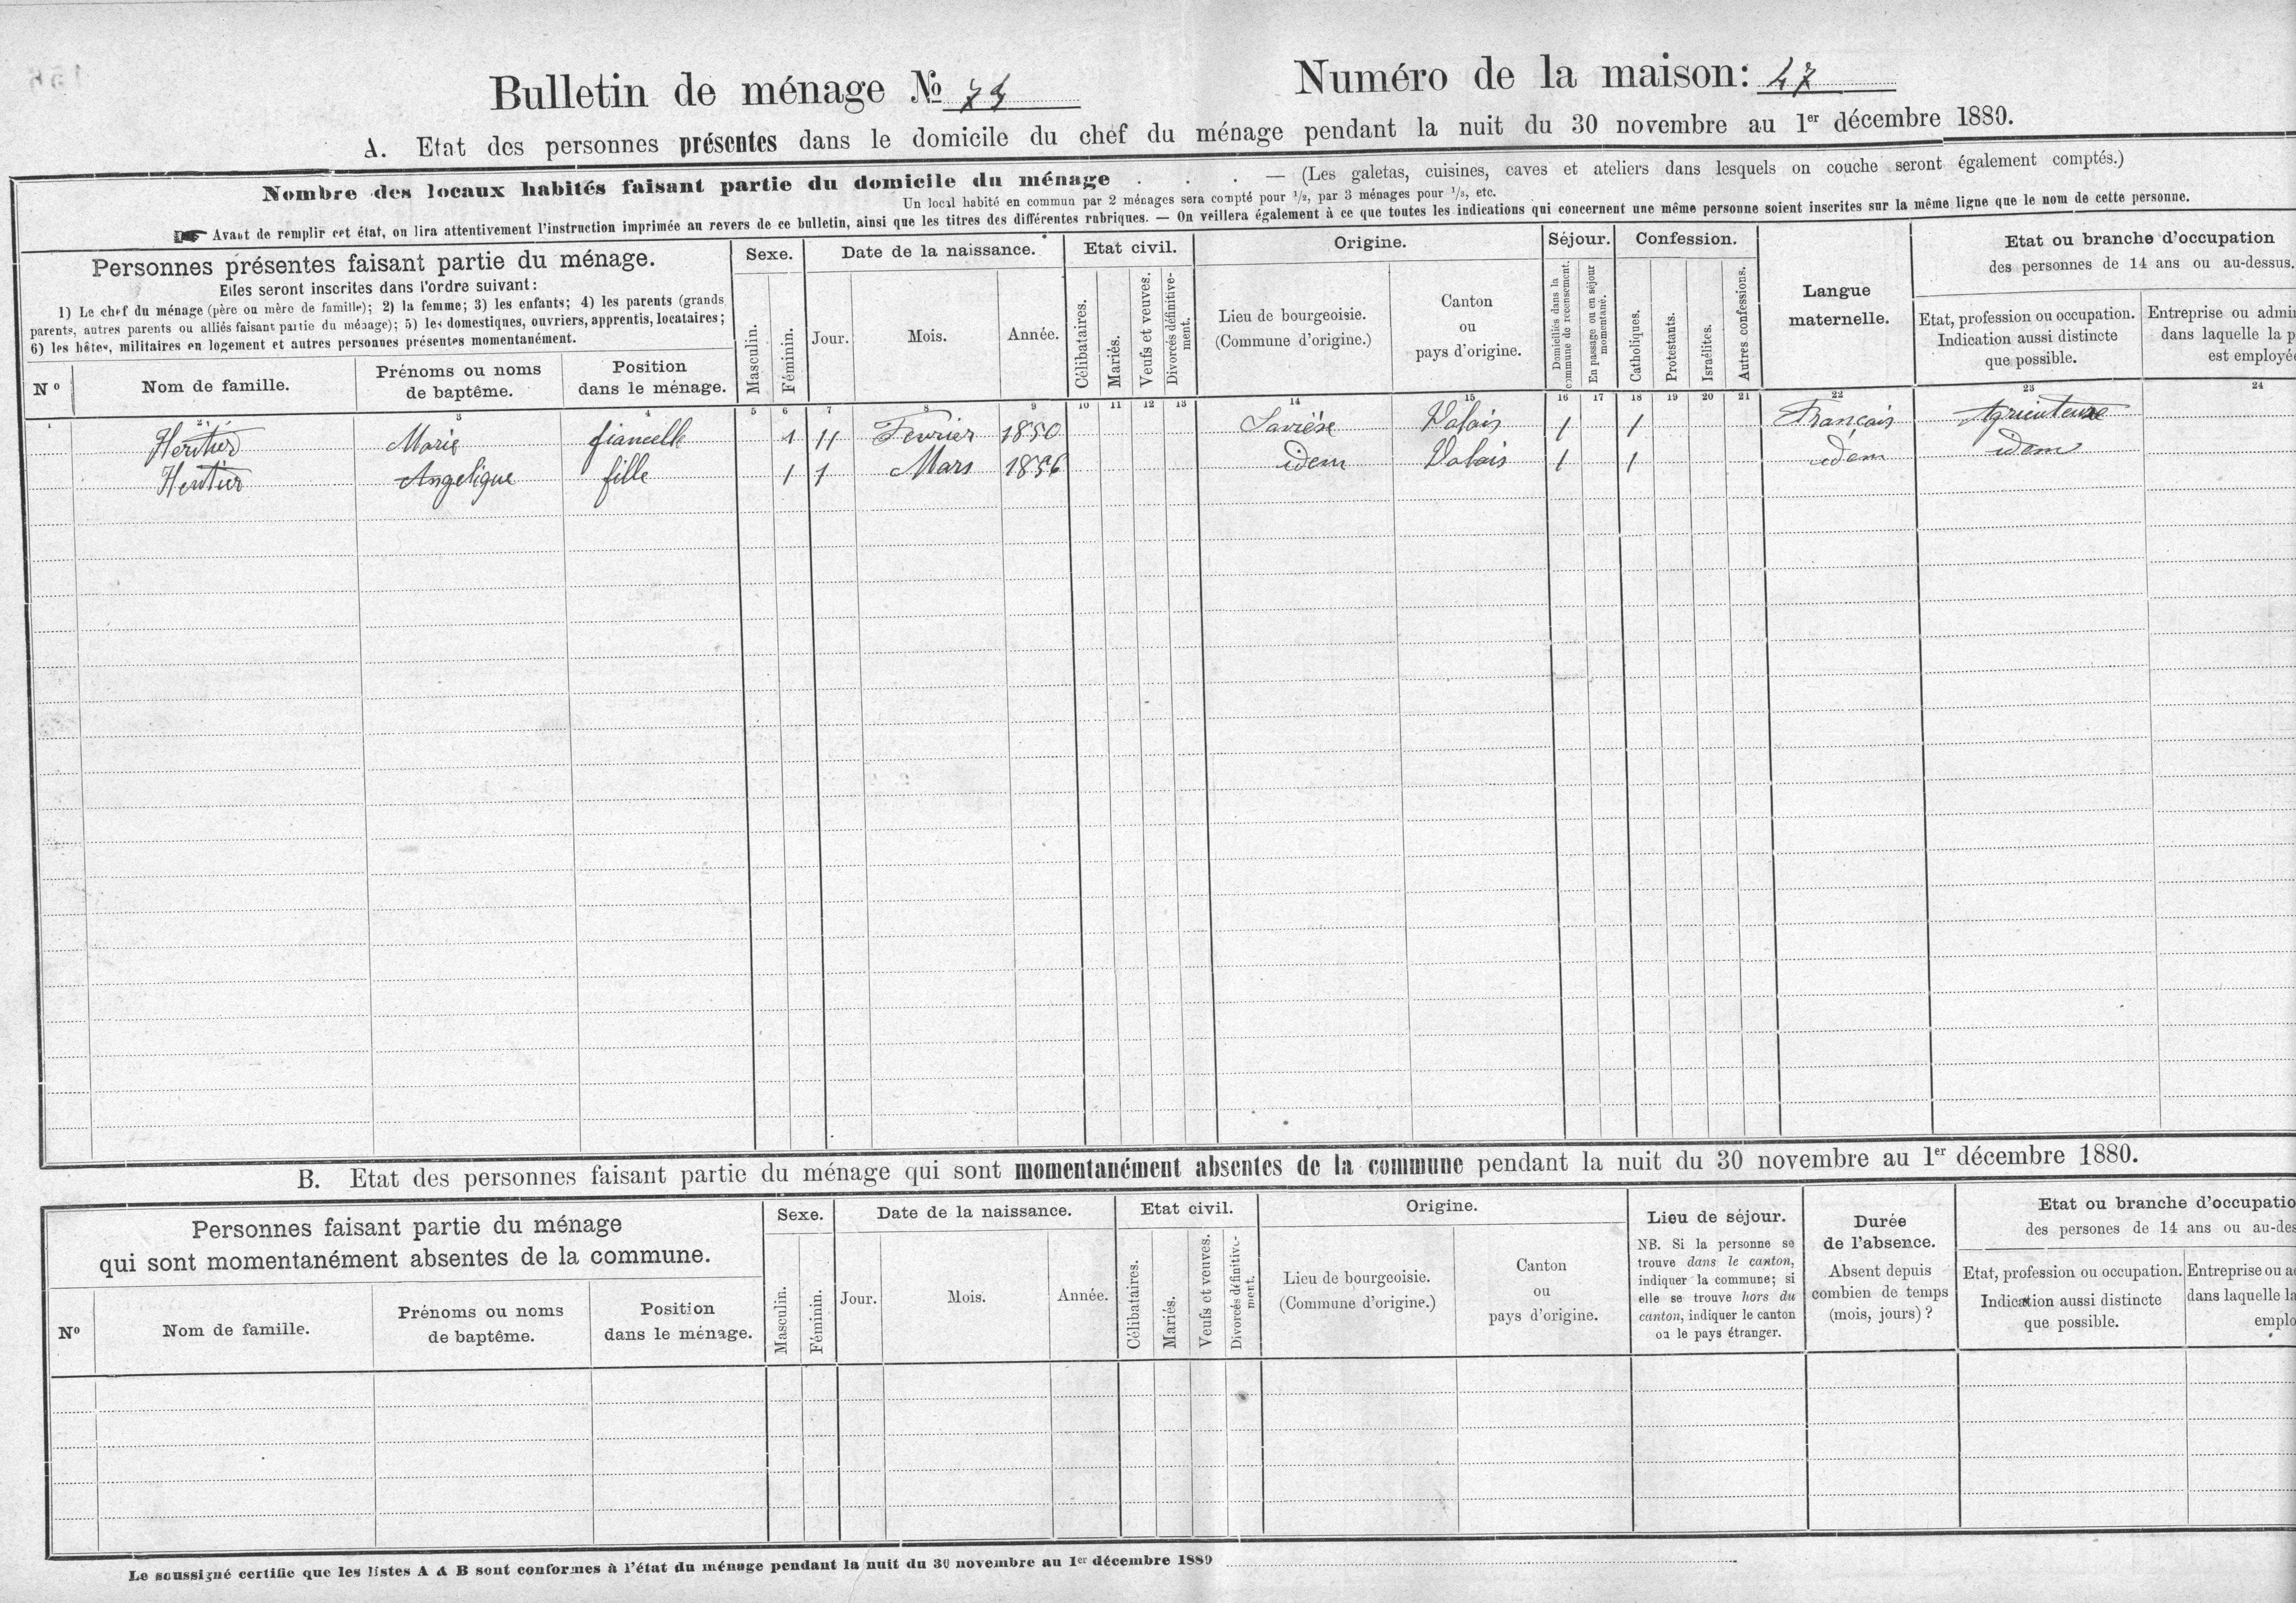 Bulletin de ménage № 73
Numéro de la maison: 47
A. Etat des personnes présentes dans le domicile du chef du ménage pendant la nuit du 30 novembre au 1er décembre 1880.
Nombre des locaux habités faisant partie du domicile du ménage . . . — (Les galetas, cuisines, caves et ateliers dans lesquels on couche seront également comptés.)
Un local habité en commun par 2 ménages sera compté pour 1/2, par 3 ménages pour 1/3, etc.
☞ Avant de remplir cet état, on lira attentivement l'instruction imprimée au revers de ce bulletin, ainsi que les titres des différentes rubriques. — On veillera également à ce que toutes les indications qui concernent une même personne soient inscrites sur la même ligne que le nom de cette personne.
Personnes présentes faisant partie du ménage.
Elles seront inscrites dans l'ordre suivant:
1) Le chef du ménage (père ou mère de famille); 2) la femme; 3) les enfants; 4) les parents (grands
parents, autres parents ou alliés faisant partie du ménage); 5) les domestiques, ouvriers, apprentis, locataires;
6) les hôtes, militaires en logement et autres personnes présentes momentanément.
Nº
Nom de famille.
Prénoms ou noms
de baptême.
Position
dans le ménage.
Sexe.
Masculin.
Féminin.
Date de la naissance.
Jour.
Mois.
Année.
Etat civil.
Célibataires.
Mariés.
Veufs et veuves.
Divorcés définitive-
ment.
Origine.
Lieu de bourgeoisie.
(Commune d'origine.)
Canton
ou
pays d'origine.
Séjour.
Domiciliés dans la
commune de recensement.
En passage ou en séjour
momentané.
Confession.
Catholiques.
Protestants.
Israélites.
Autres confessions.
Langue
maternelle.
Etat ou branche d'occupation
des personnes de 14 ans ou au-dessus.
Etat, profession ou occupation.
Indication aussi distincte
que possible.
Entreprise ou admin
dans laquelle la p
est employé
1 2 3 4 5 6 7 8 9 10 11 12 13 14 15 16 17 18 19 20 21 22 23 24
Heritier Marie fiancelle 1 11 Fevrier 1850 Savièse Valais 1 1 Français Agriculteure
Heritier Angelique fille 1 1 Mars 1856 idem Valais 1 1 idem idem
B. Etat des personnes faisant partie du ménage qui sont momentanément absentes de la commune pendant la nuit du 30 novembre au 1er décembre 1880.
Personnes faisant partie du ménage
qui sont momentanément absentes de la commune.
Nº
Nom de famille.
Prénoms ou noms
de baptême.
Position
dans le ménage.
Sexe.
Masculin.
Féminin.
Date de la naissance.
Jour.
Mois.
Année.
Etat civil.
Célibataires.
Mariés.
Veufs et veuves.
Divorcés définitive-
ment.
Origine.
Lieu de bourgeoisie.
(Commune d'origine.)
Canton
ou
pays d'origine.
Lieu de séjour.
NB. Si la personne se
trouve dans le canton,
indiquer la commune; si
elle se trouve hors du
canton, indiquer le canton
ou le pays étranger.
Durée
de l'absence.
Absent depuis
combien de temps
(mois, jours) ?
Etat ou branche d'occupatio
des persones de 14 ans ou au-des
Etat, profession ou occupation.
Indication aussi distincte
que possible.
Entreprise ou a
dans laquelle la
emplo
Le soussigné certifie que les listes A & B sont conformes à l'état du ménage pendant la nuit du 30 novembre au 1er décembre 1880